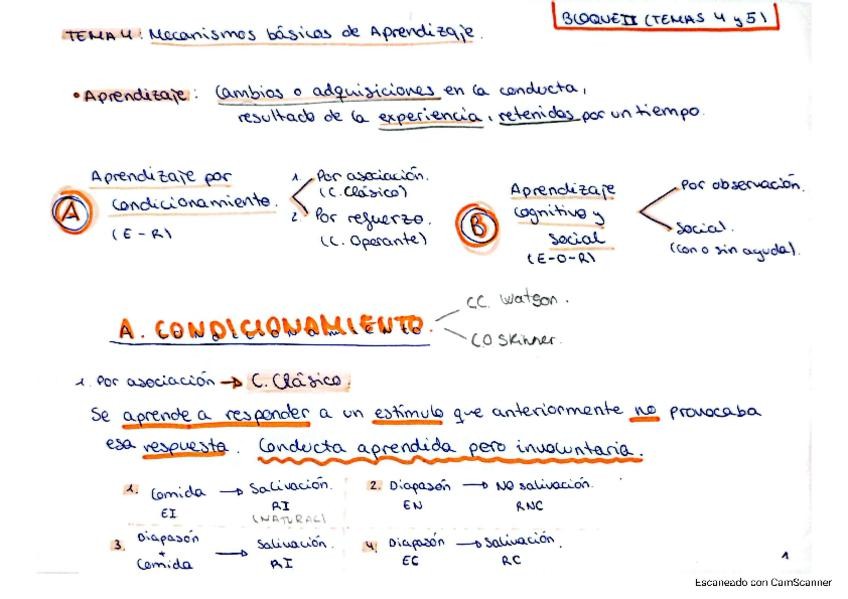 BLOQUE II (TEMAS 4 y 5)
TEMA 4: Mecanismos básicos de Aprendizaje.
• Aprendizaje: Cambios o adquisiciones en la conducta,
resultado de la experiencia, retenidos por un tiempo.
A
Aprendizaje por
condicionamiento.
(E-R)
1. Por asociación.
(C. Clásico)
2. Por refuerzo.
(C. Operante)
B
Aprendizaje
cognitivo y
social
(E-O-R)
Por observación.
Social.
(con o sin ayuda).
A. CONDICIONAMIENTO
CC. Watson.
CO Skinner.
1. Por asociación → C. Clásico.
Se aprende a responder a un estímulo que anteriormente no provocaba
esa respuesta. Conducta aprendida pero involuntaria.
1. Comida → Salivación.
EI RI
(NATURAL)
2. Diapasón → NO salivación.
EN RNC
3. Diapasón
+
Comida → Salivación.
RI
4. Diapasón → Salivación.
EC RC
1
Escaneado con CamScanner